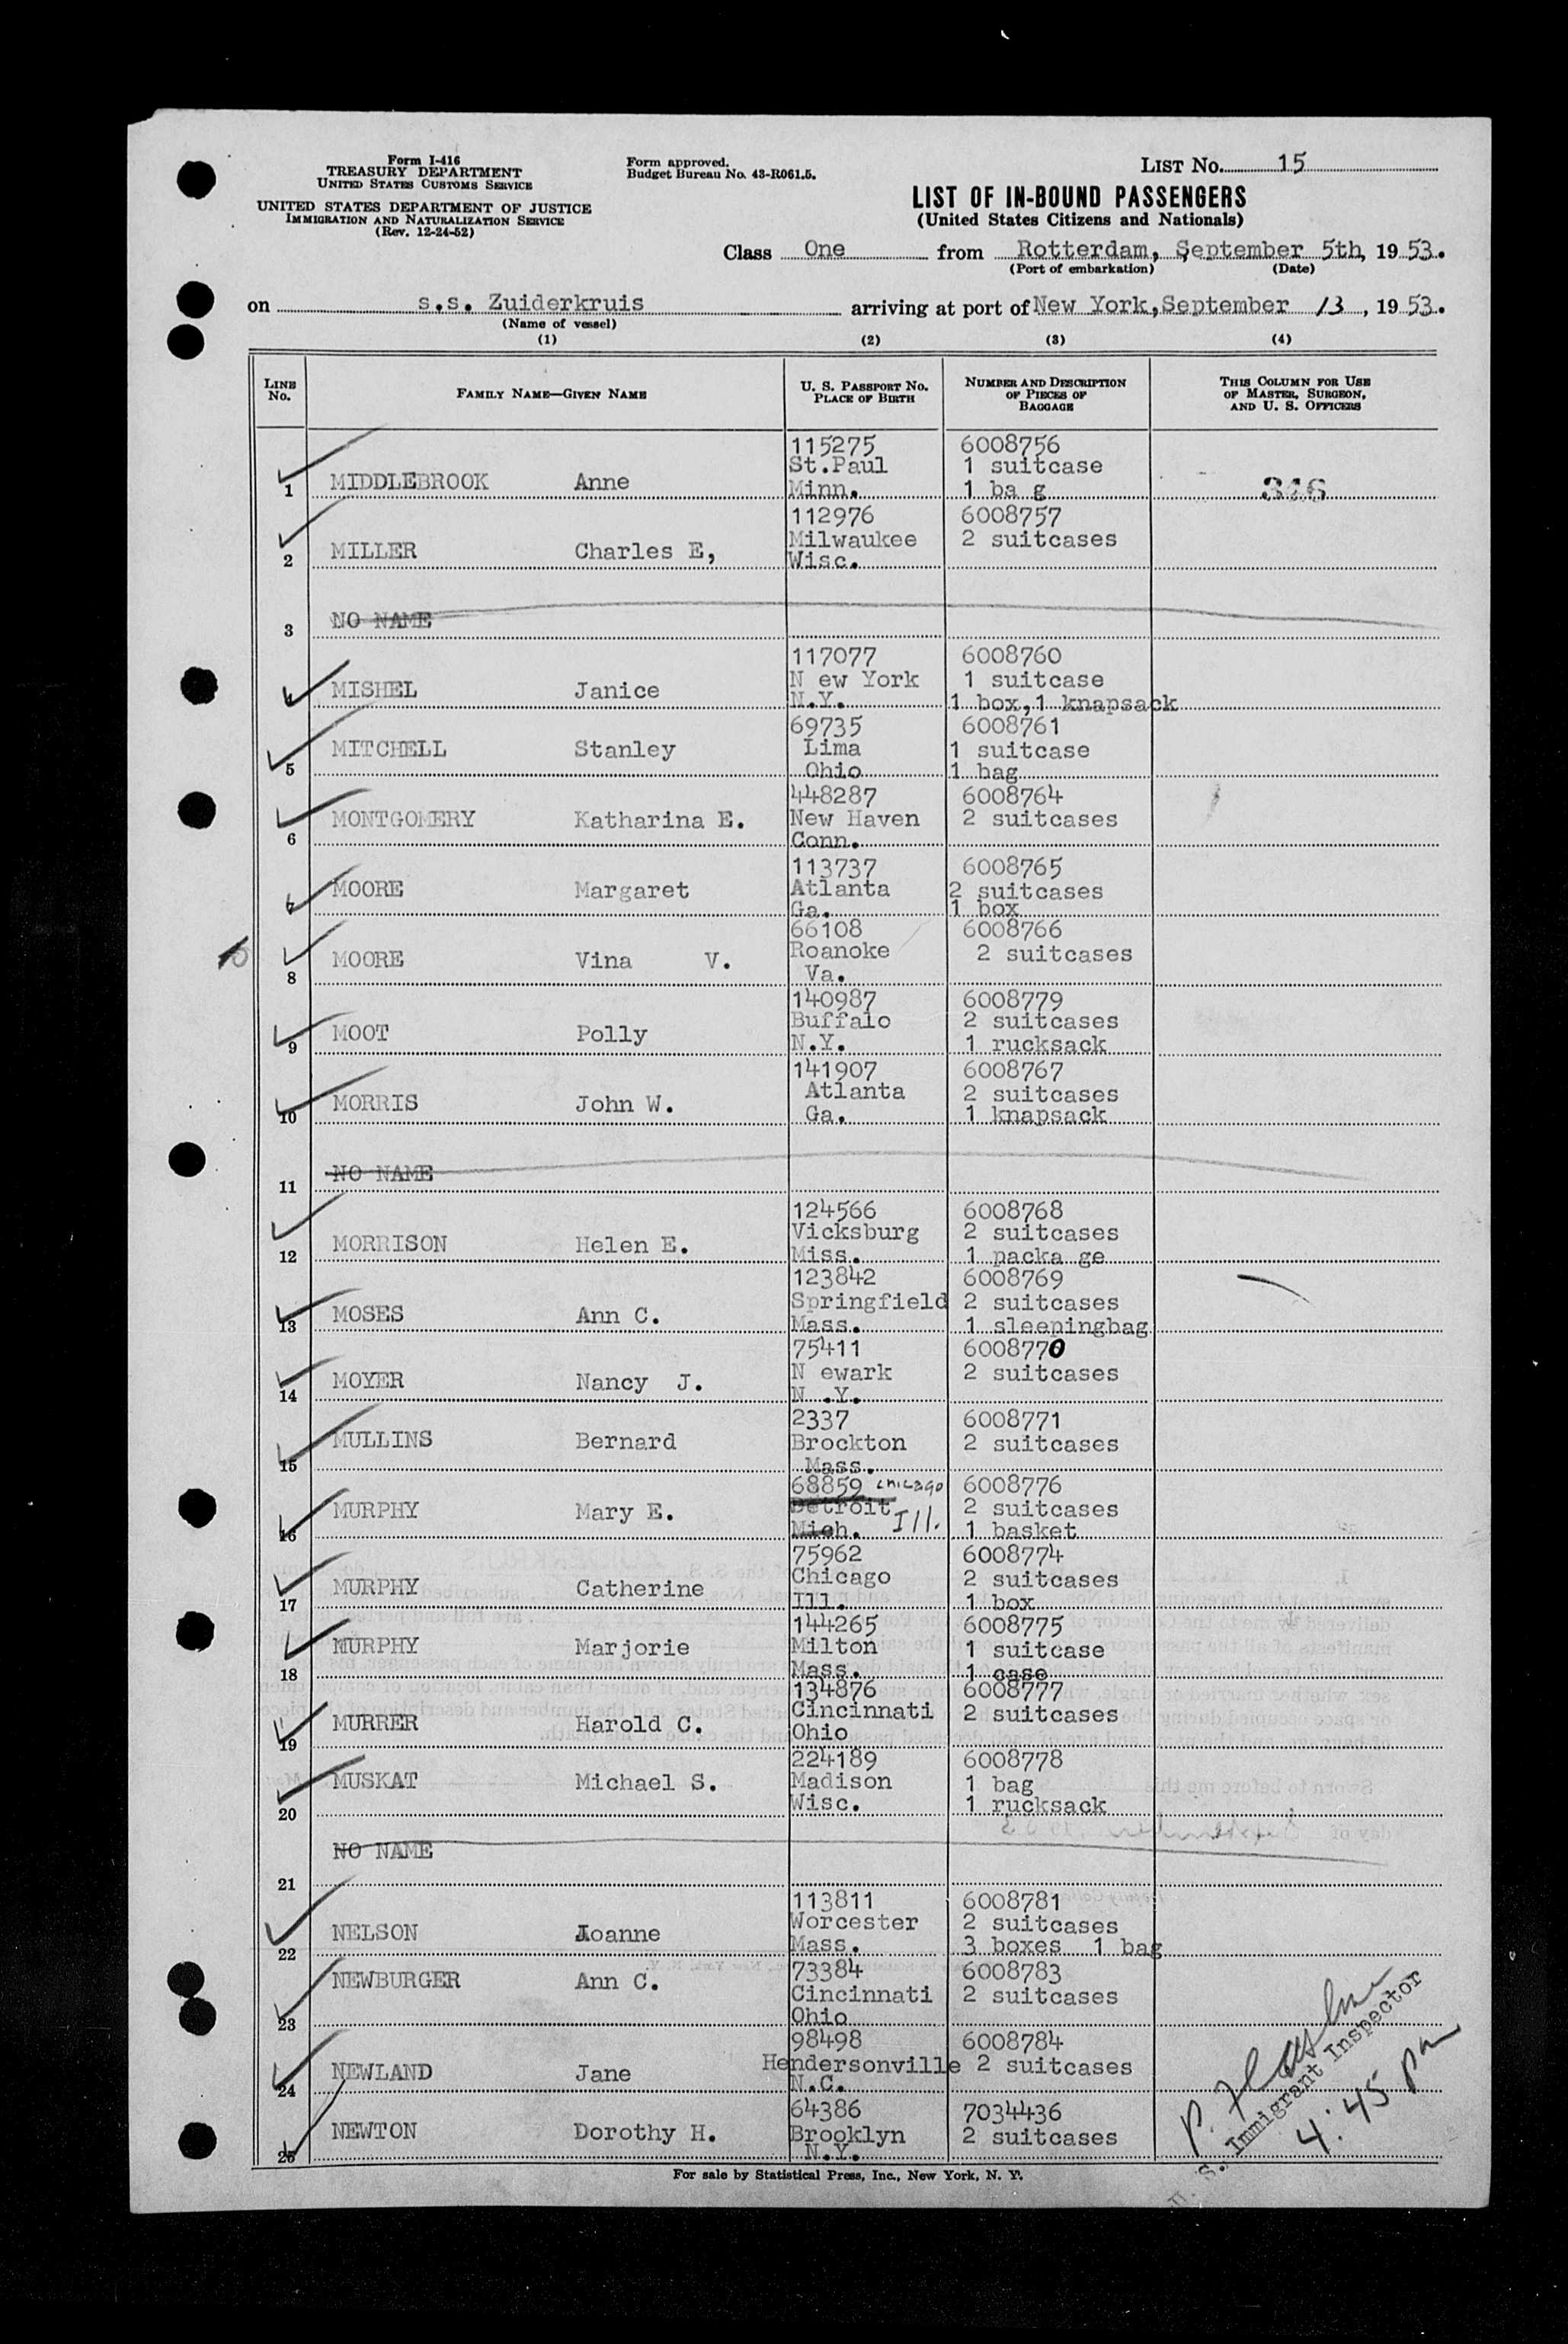 Form I-416
TREASURY DEPARTMENT
UNITED STATES CUSTOMS SERVICE
UNITED STATES DEPARTMENT OF JUSTICE
IMMIGRATION AND NATURALIZATION SERVICE
(Rev. 12-24-52)
Form approved.
Budget Bureau No. 43-R061.5.
LIST No. 15
LIST OF IN-BOUND PASSENGERS
(United States Citizens and Nationals)
Class One from Rotterdam, September 5th, 19 53.
(Port of embarkation) (Date)
on s.s. Zuiderkruis arriving at port of New York, September 13, 19 53.
(Name of vessel)
(1) (2) (3) (4)
LINE No. FAMILY NAME—GIVEN NAME U. S. PASSPORT No. PLACE OF BIRTH NUMBER AND DESCRIPTION OF PIECES OF BAGGAGE THIS COLUMN FOR USE OF MASTER, SURGEON, AND U. S. OFFICERS
115275 6008756
St.Paul 1 suitcase
1 MIDDLEBROOK Anne Minn. 1 ba g 346
112976 6008757
2 MILLER Charles E, Milwaukee 2 suitcases
Wisc.
3 NO NAME
117077 6008760
4 MISHEL Janice N ew York 1 suitcase
N.Y. 1 box,1 knapsack
69735 6008761
5 MITCHELL Stanley Lima 1 suitcase
Ohio 1 bag
448287 6008764
6 MONTGOMERY Katharina E. New Haven 2 suitcases
Conn.
113737 6008765
7 MOORE Margaret Atlanta 2 suitcases
Ga. 1 box
66108 6008766
8 MOORE Vina V. Roanoke 2 suitcases
Va.
140987 6008779
9 MOOT Polly Buffalo 2 suitcases
N.Y. 1 rucksack
141907 6008767
10 MORRIS John W. Atlanta 2 suitcases
Ga. 1 knapsack
11 NO NAME
124566 6008768
12 MORRISON Helen E. Vicksburg 2 suitcases
Miss. 1 packa ge
123842 6008769
13 MOSES Ann C. Springfield 2 suitcases
Mass. 1 sleepingbag
75411 6008770
14 MOYER Nancy J. N ewark 2 suitcases
N .Y.
2337 6008771
15 MULLINS Bernard Brockton 2 suitcases
Mass.
68859 Chicago 6008776
16 MURPHY Mary E. Detroit Ill. 2 suitcases
Mich. 1 basket
75962 6008774
17 MURPHY Catherine Chicago 2 suitcases
Ill. 1 box
144265 6008775
18 MURPHY Marjorie Milton 1 suitcase
Mass. 1 case
134876 6008777
19 MURRER Harold C. Cincinnati 2 suitcases
Ohio
224189 6008778
20 MUSKAT Michael S. Madison 1 bag
Wisc. 1 rucksack
21 NO NAME
113811 6008781
22 NELSON Joanne Worcester 2 suitcases
Mass. 3 boxes 1 bag
73384 6008783
23 NEWBURGER Ann C. Cincinnati 2 suitcases
Ohio
98498 6008784
24 NEWLAND Jane Hendersonville 2 suitcases
N.C.
64386 7034436
25 NEWTON Dorothy H. Brooklyn 2 suitcases
N.Y.
S. Immigrant Inspector
4:45 pm
For sale by Statistical Press, Inc., New York, N. Y.